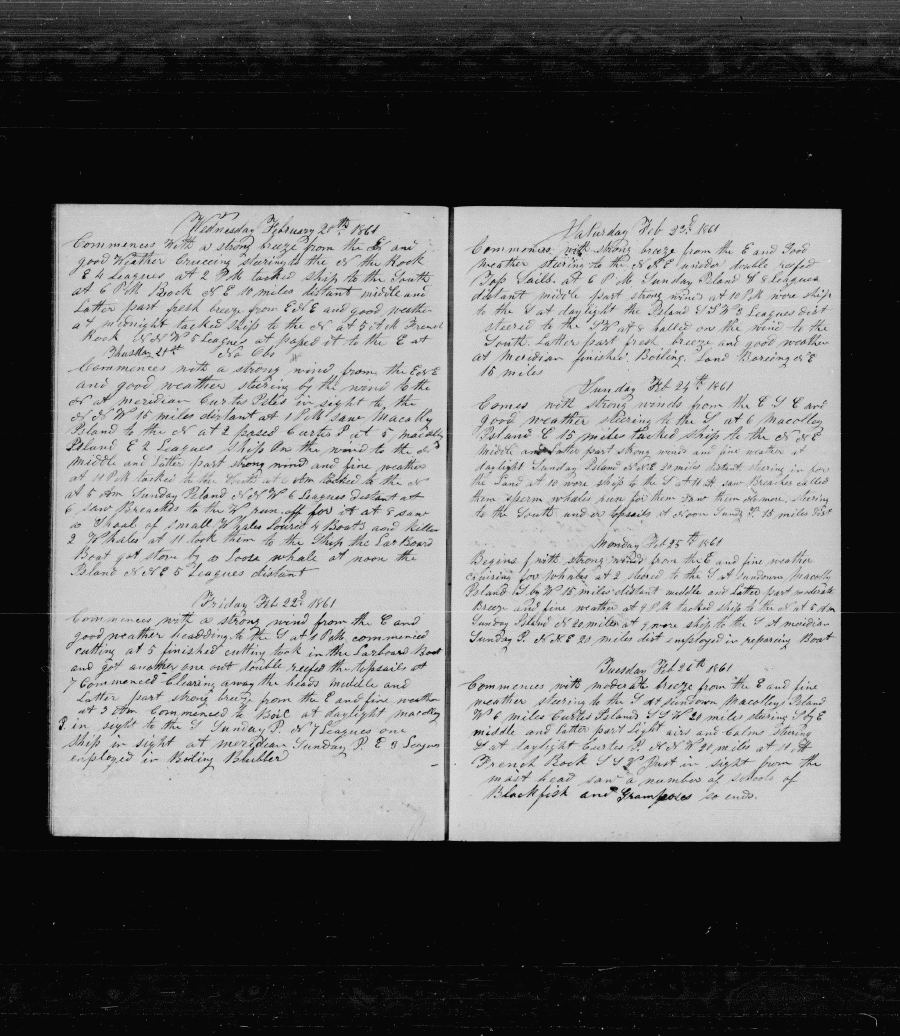 Wednesday February 20th 1861
Commences with a strong breeze from the E and
good Weather steering to the N the Rock
E 4 Leagues at 2 P M tacked ship to the South
at 6 P M Rock N E 10 miles distant middle and
Latter part fresh breeze from E N E and good weather
at midnight tacked ship to the N at 5 A M French
Rock N N W 5 Leagues at pased it to the E at
Thusday 21st No Obs
Commences with a strong wind from the E N E
and good weather steering by the wind to the
N at meridian Curtes Iles in sight to the
N N W 15 miles distant at 1 P M saw Macolley
Island to the N at 2 pased Curtes I at 5 Macolley
Island E 2 Leagues Ship on the wind to the N
middle and latter part strong wind and fine weather
at 11 P M tacked to the South at 2 Am tacked to the N
at 5 Am Sunday Island N N W 6 Leagues distant at
6 saw Breaches to the W run off for it at 8 saw
a Shoal of small Whales Lowered 4 Boats and killed
2 Whales at 11 took them to the Ship the Lar Board
Boat got stove by a Loose whale at noon the
Island N N E 5 Leagues distant
Friday Feb 22d 1861
Commences with a strong wind from the E and
good weather headding to the S at 1 P M commenced
cutting at 5 finished cutting took in the Larboard Boat
and got another one out double reefed the topsails at
7 Commenced Clearing away the heads middle and
Latter part strong breeze from the E and fine weather
at 3 Am Commenced to Boil at daylight Macolley
I. in sight to the S Sunday I. N 7 Leagues one
Ship in sight at meridian Sunday I E 3 Leagues
employed in Boiling Blubber
Saturday Feb 23d 1861
Commences with strong breeze from the E and Good
weather steering to the N N E under double reefed
Top Sails. at 6 P M Sunday Island W 8 Leagues
distant middle part strong winds at 10 P M wore ship
to the S at daylight the Island S S W 3 Leagues dist
steered to the S W at 8 halled on the wind to the
South. Latter part fresh breeze and good weather
at Meridian finished Boiling. Land Bareing N E
15 miles
Sunday Feb 24th 1861
Comes with strong winds from the E S E and
good weather steering to the S at 6 Macolley
Island E 15 miles tacked ship to the N N E
Middle and latter part strong winds and fine weather at
daylight Sunday Island N N E 20 miles distant steering in for
the Land at 10 wore ship to the S at 11 A saw Breaches called
them sperm whales run for them saw them no more, steering
to the South under topsails at Noon Sundy I. 15 miles dist
Monday Feb 25th 1861
Begins with strong wind from the E and fine weather
cruising for whales at 2 steered to the S at Sundown Macolley
Island S by W 15 miles distant middle and latter part moderate
Breeze and fine weather at 9 P.M. tacked ship to the N at 2 Am
Sunday Island N 20 miles at 9 wore ship to the S at meridian
Sunday I. N N E 20 miles dist employed in repareing Boat
Tuesday Feb 26th 1861
Commences with moderate breeze from the E and fine
weather steering to the S at sundown Macolleys Island
W 6 miles Curtes Islands S S W 20 miles stering S by E
middle and latter part light airs and Calms stering
S at daylight Curtes I. N N W 20 miles at 11 A
French Rock S S Just in sight from the
mast head saw a number of schools of
Blackfish and Grampuses so ends.